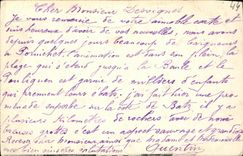 44
Cher Monsieur Sevvignet
Je vous remercie de votre aimable carte et
suis heureux d'avoir de vos nouvelles, nous avons
depuis quelques jours beaucoup de
Pornichet l'animation est tout en plein, la
plage qui s'étend jusqu'à la Baule et le
Pouliguen est garnie de milliers d'enfants
qui prennent leurs ébats, j'ai fait une pro-
menade superbe sur la côte de Batz, il y a
plusieurs kilomètres de rochers avec de nom-
breuses grottes c'est un aspect sauvage et grandiose
Recevez cher monsieur ainsi que
mes bien sincères salutations Quentin